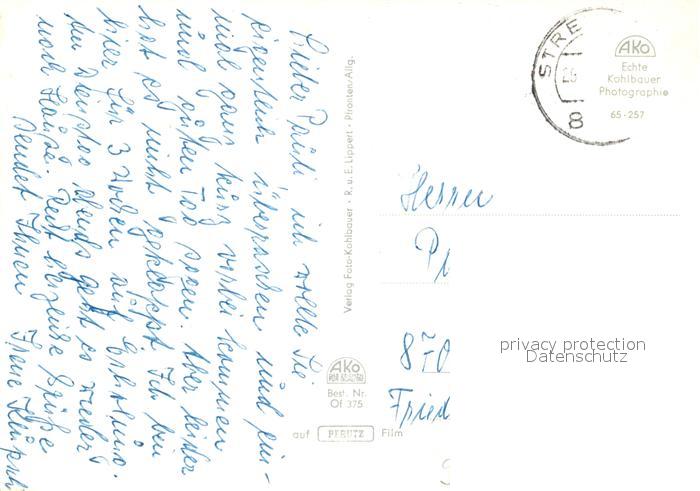 Lieber Pauli ich wollte Sie
eigentlich überraschen und ein-
mal ganz kurz vorbei kommen
und guten Tag sagen. Aber leider
hat es nicht geklappt. Ich bin
hier für 3 Wochen auf Erholung.
Am Dienstag abend geht es wieder
nach Hause. Recht herzliche Grüße
sendet Ihnen Irene
Verlag Foto-Kohlbauer · P. u. E. Lippert · Pfronten/Allg.
AKO
Best. Nr.
Of 375
auf PERUTZ Film
STRE
8
AKo
Echte
Kohlbauer
Photographie
65-257
Herrn
P
Fried
privacy protection
Datenschutz